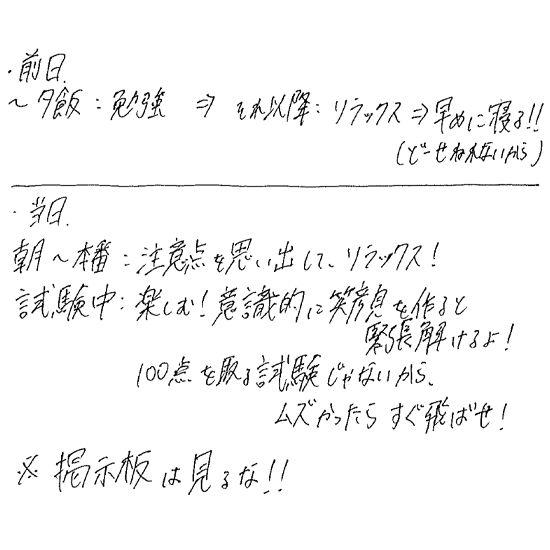 ・前日.
～夕飯：勉強 ⇒ それ以降：リラックス⇒早めに寝る!!
(どーせねれないから)
・当日.
朝～本番：注意点を思い出して、リラックス！
試験中：楽しむ！意識的に笑顔を作ると
緊張解けるよ！
100点を取る試験じゃないから、
ムズかったらすぐ飛ばせ！
※ 掲示板は見るな!!